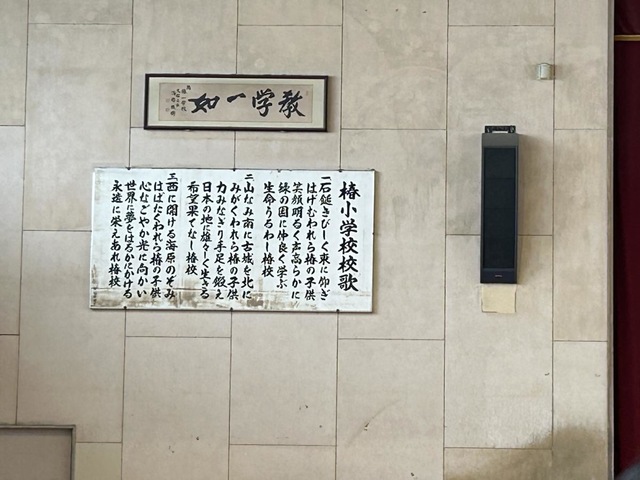 教学一如
椿小学校校歌
一石鎚きびしく東に仰ぎ
はげむわれら椿の子供
笑顔明るく声高らかに
緑の園に仲良く学ぶ
生命うるわし椿校
二山なみ南に古城を北に
みがくわれら椿の子供
力みなぎり手足を鍛え
日本の地に雄々しく生きる
希望果てなし椿校
三西に開ける海原のぞみ
はばたくわれら椿の子供
心なごやか光に向かい
世界に夢をはるかにかける
永遠に栄えあれ椿校